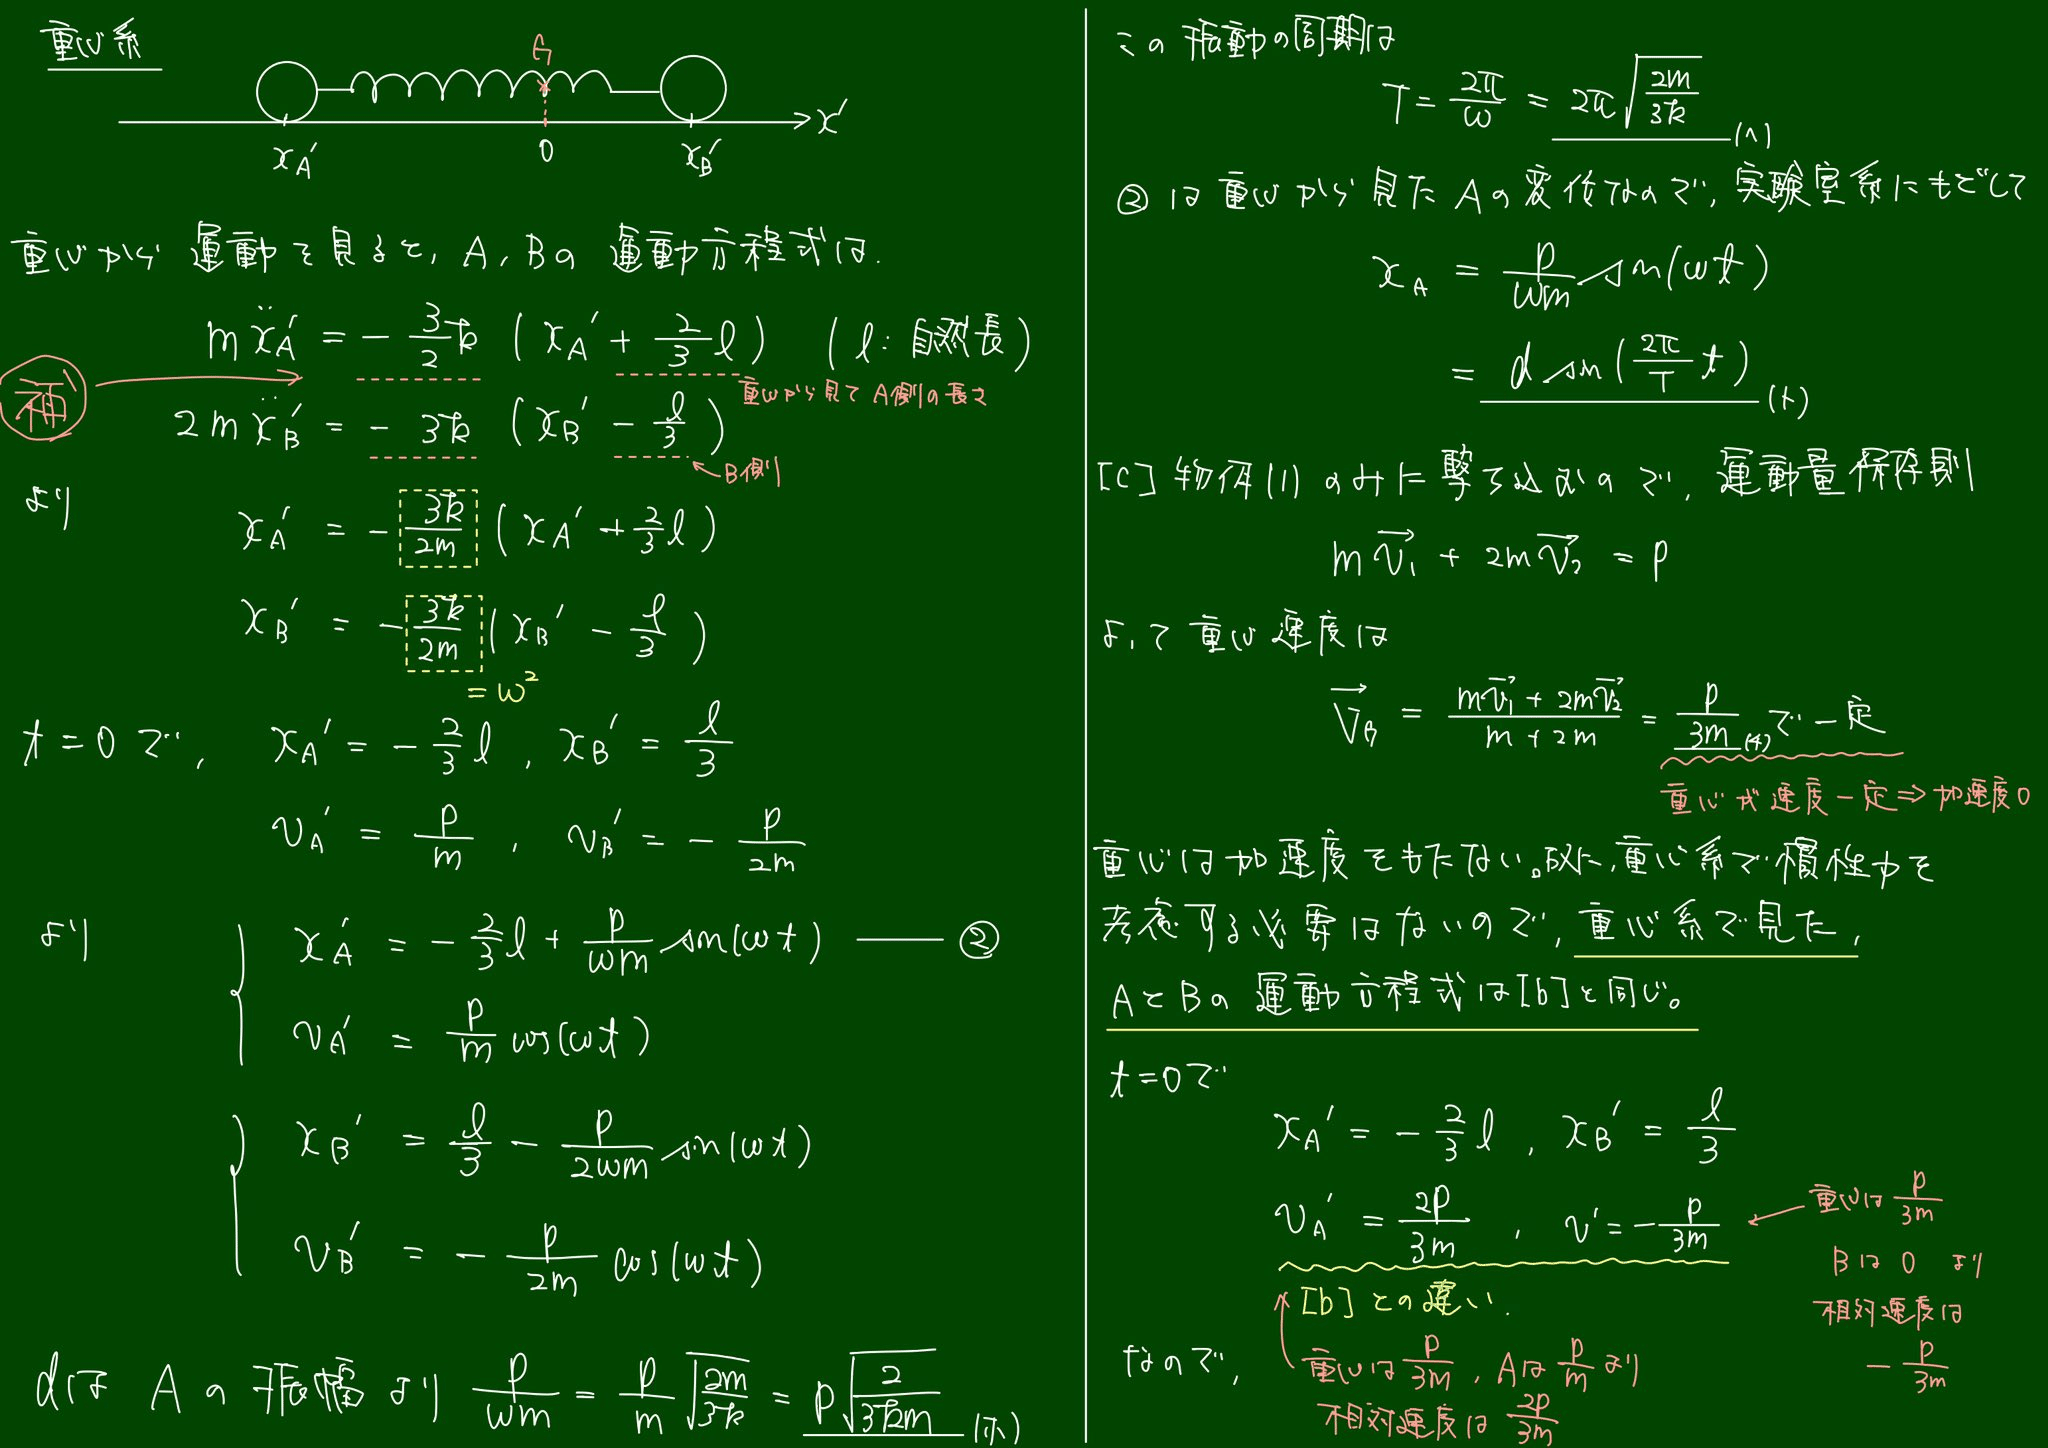 重心系
G
x'
xA' 0 xB'
重心から運動を見ると, A, Bの運動方程式は.
mẍA' = - 3/2 k (xA' + 2/3 l) (l: 自然長)
補
重心から見て A側の長さ
2mẍB' = - 3k (xB' - l/3)
←B側
より
xA' = - 3k/2m (xA' + 2/3 l)
xB' = - 3k/2m (xB' - l/3)
= ω²
t=0で, xA' = - 2/3 l, xB' = l/3
vA' = p/m, vB' = - p/2m
より
xA' = - 2/3 l + p/ωm sin(ωt) ②
vA' = p/m cos(ωt)
xB' = l/3 - p/2ωm sin(ωt)
vB' = - p/2m cos(ωt)
dは Aの振幅より p/ωm = p/m √(2m/3k) = p√(2/3km) (ホ)
この振動の周期は
T = 2π/ω = 2π√(2m/3k) (ヘ)
②は重心から見たAの変位なので, 実験室系にもどして
xA = p/ωm sin(ωt)
= d sin(2π/T t) (ト)
[C] 物体(1)のみに撃ち込むので, 運動量保存則
mv₁ + 2mv₂ = p
よって重心速度は
VB = (mv₁ + 2mv₂)/(m + 2m) = p/3m (チ) で一定
重心が速度一定⇒加速度0
重心は加速度をもたない。故に,重心系で慣性力を
考慮する必要はないので, 重心系で見た,
AとBの運動方程式は[b]と同じ。
t=0で
xA' = - 2/3 l, xB' = l/3
vA' = 2p/3m, v' = - p/3m
重心は p/3m
Bは 0 より
相対速度は
- p/3m
[b]との違い.
なので,
重心は p/3m, Aは p/m より
相対速度は 2p/3m